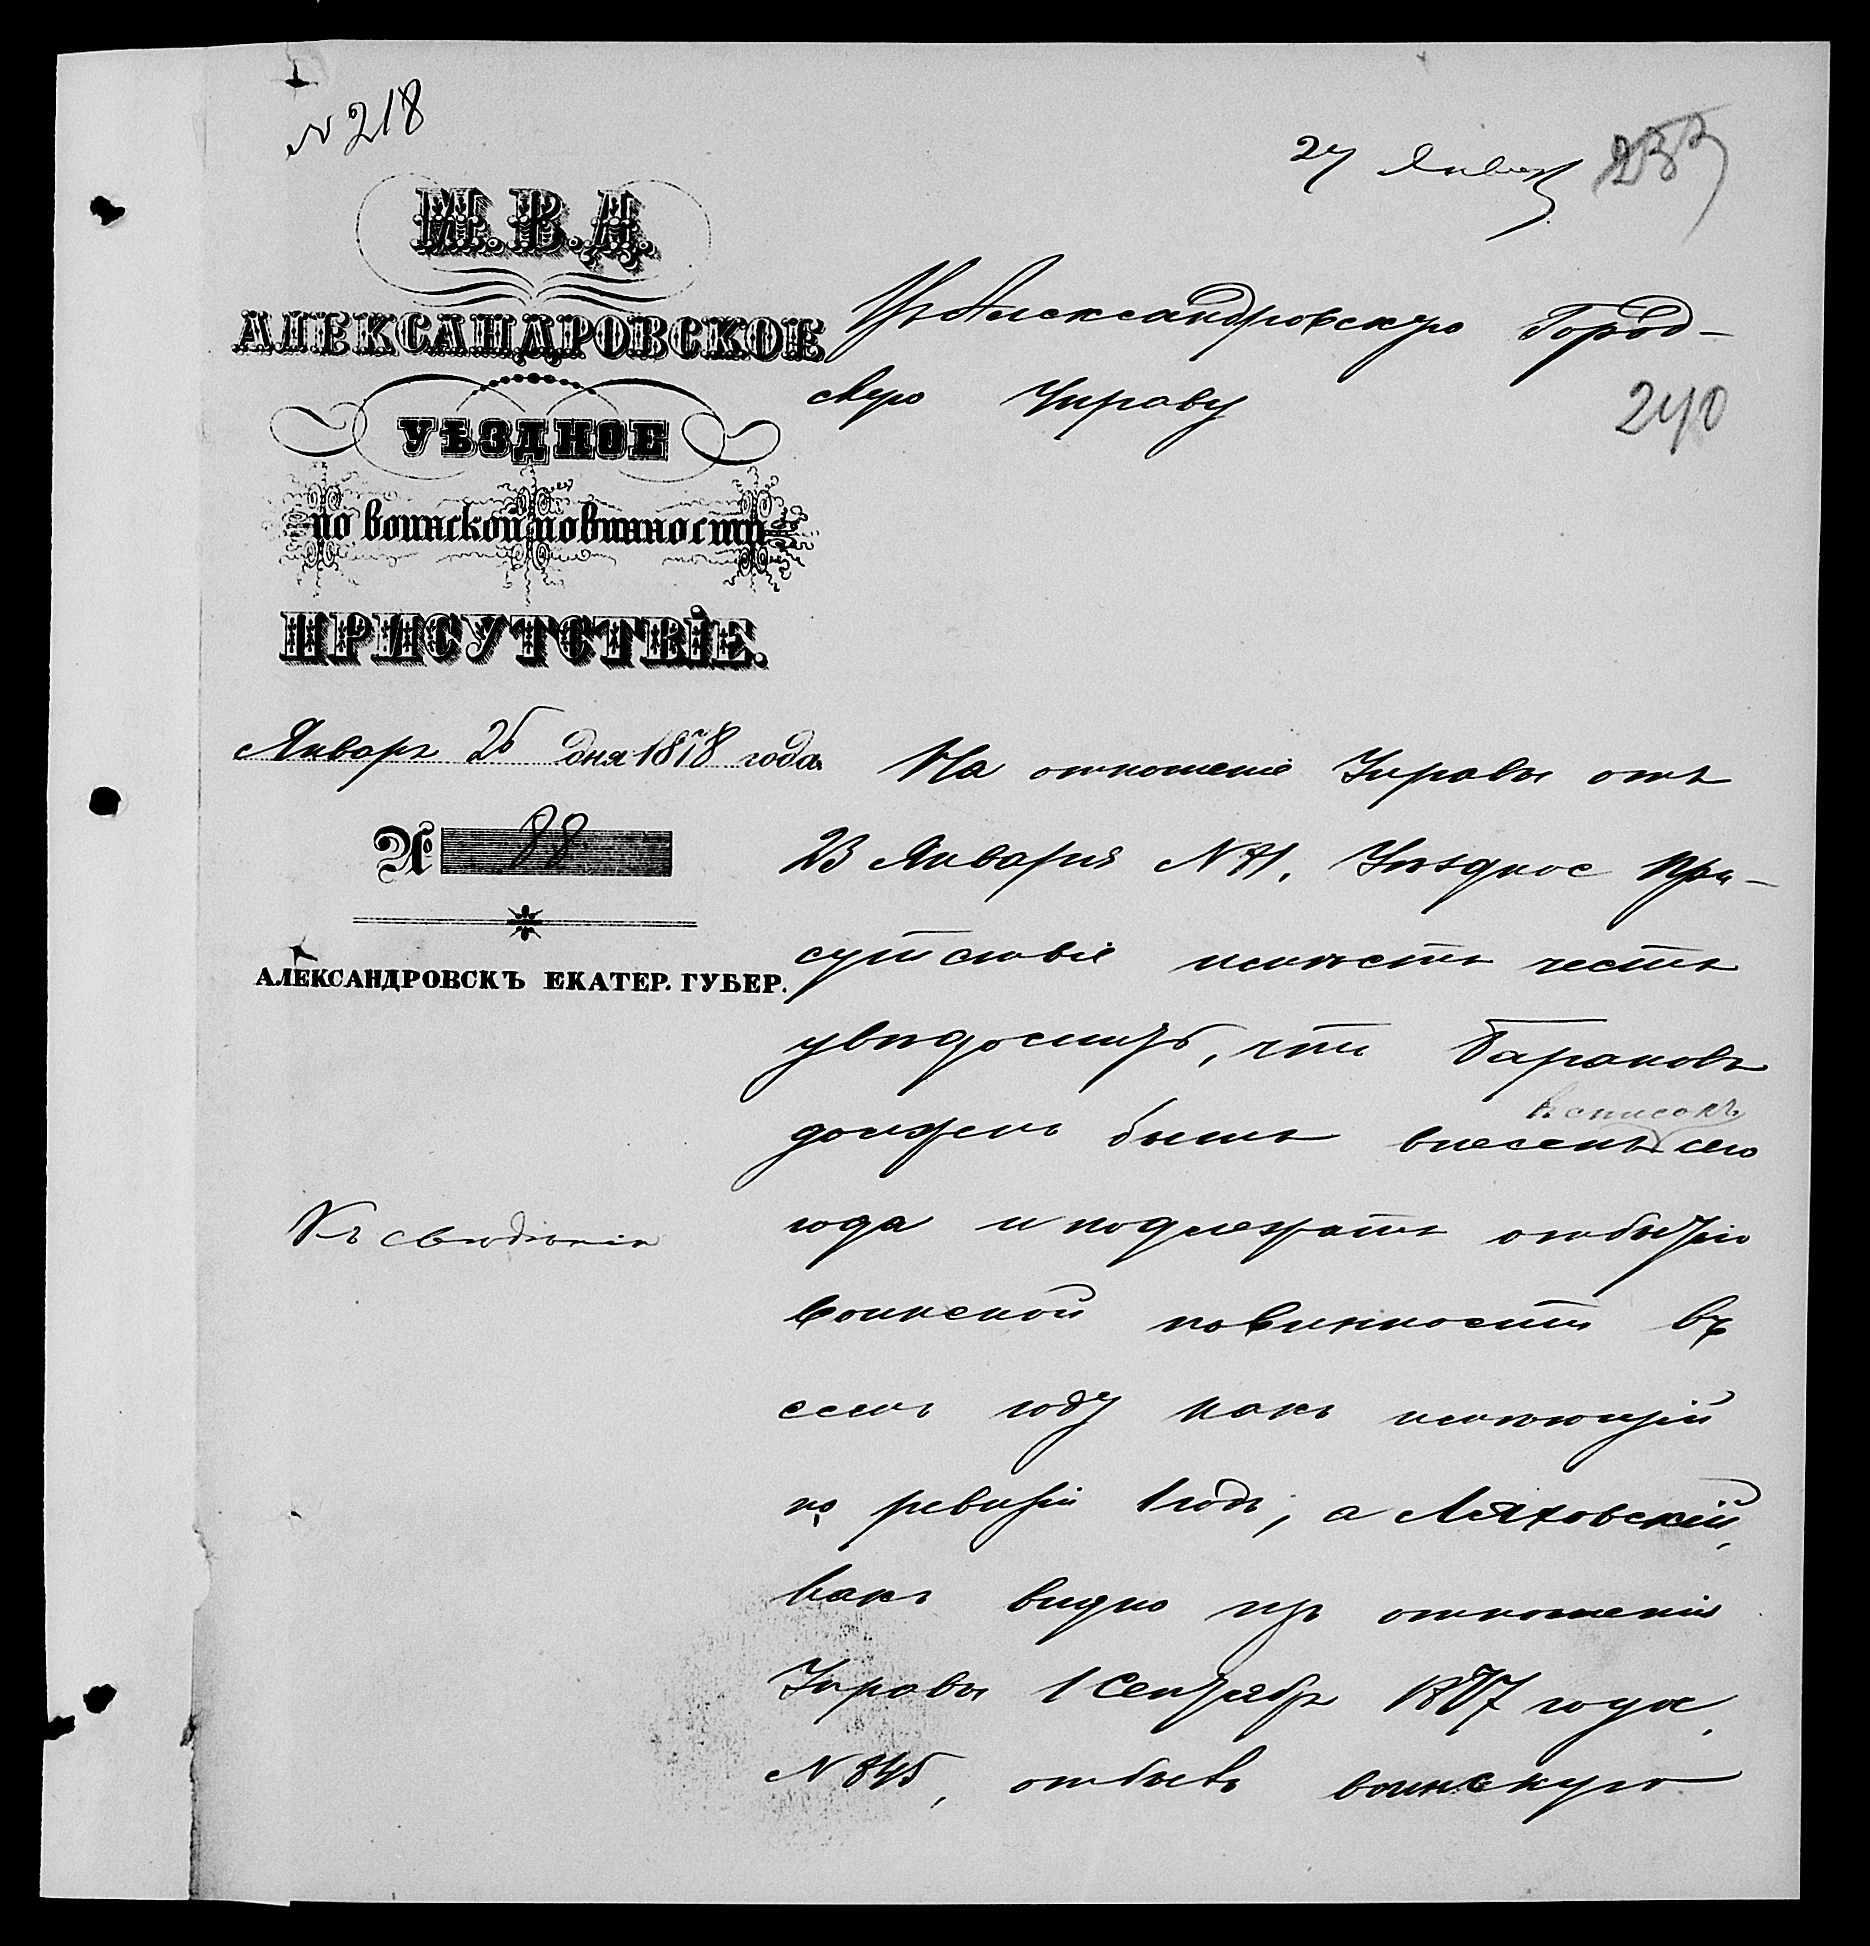 N 218
27 Январ
233
240
М. В. Д.
АЛЕКСАНДРОВСКОЕ
УѢЗДНОЕ
по воинской повинности
ПРИСУТСТВІЕ.
Январь 26 дня 1878 года.
№ 88
АЛЕКСАНДРОВСКЪ ЕКАТЕР. ГУБЕР.
Къ свѣдѣнію
Въ Александровскую Город-
скую Управу
На отношеніе Управы отъ
23 Января N 71, Уѣздное При-
сутствіе имѣетъ честь
увѣдомить, что Барановъ
долженъ быть внесенъ въ списокъ сего
года и подлежатъ отбытію
воинской повинности въ
семъ году какъ имѣющій
по ревизіи 1 годъ, а Ляховскій,
какъ видно изъ отношенія
Управы 1 Сентябр 1877 года,
N 845, отбывъ воинскую